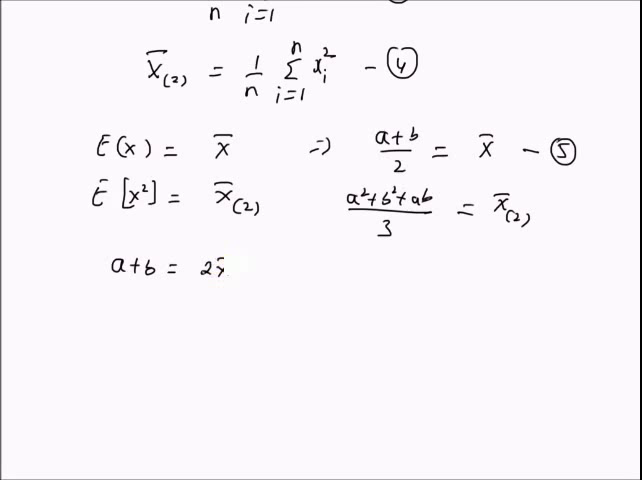 n i=1
x̄(2) = 1/n n∑i=1 xᵢ² - ④
E(x) = x̄ ⇒ a+b/2 = x̄ - ⑤
E[x²] = x̄(2) a²+b²+ab/3 = x̄(2)
a+b = 2x̄